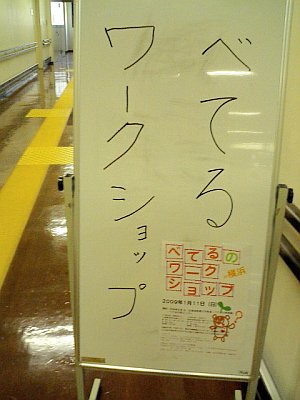 べてる
ワークショップ
べてるの
ワーク
in横浜
ショップ
2009年1月11日(日)